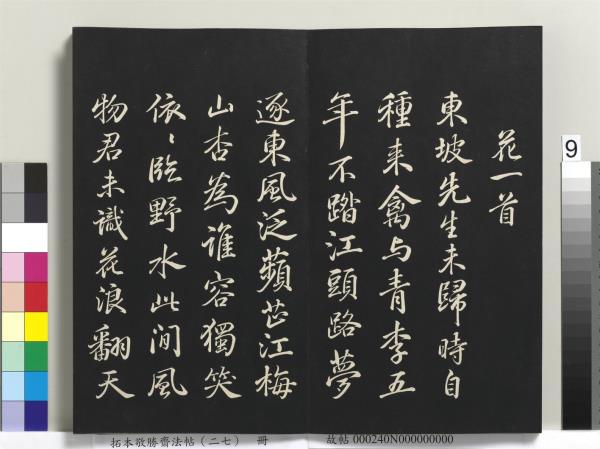 花一首
東坡先生未歸時自
種来禽与青李五
年不踏江頭路夢
逐東風泛蘋芷江梅
山杏為誰容獨笑
依〻臨野水此间風
物君未識花浪翻天
9
拓本敬勝齋法帖（二七） 冊
故帖 000240N000000000